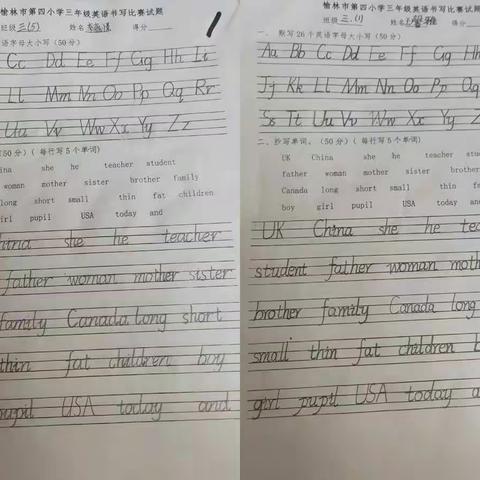 榆林市第四小学三年级英语书写比赛试题
班级 三(5) 姓名 得分
语字母大小写(50分)
Cc Dd Ee Ff Gg Hh Ii
Ll Mm Nn Oo Pp Qq Rr
Uu Vv Ww Xx Yy Zz
(50分)(每行写5个单词)
ina she he teacher student
woman mother sister brother family
long short small thin fat children
irl pupil USA today and
China she he teacher
father woman mother sister
family Canada long short
thin fat children boy
pupil USA today and
榆林市第四小学三年级英语书写比赛试题
班级 三.(1) 姓名 得分
一、默写26个英语字母大小写(50分)
Aa Bb Cc Dd Ee Ff Gg Hh
Jj Kk Ll Mm Nn Oo Pp Qq
Ss Tt Uu Vv Ww Xx Yy Zz
二、抄写单词。(50分)(每行写5个单词)
UK China she he teacher stude
father woman mother sister brother
Canada long short small thin fat
boy girl pupil USA today and
UK China she he tea
student father woman moth
brother family Canada long
small thin fat children b
girl pupil USA today a